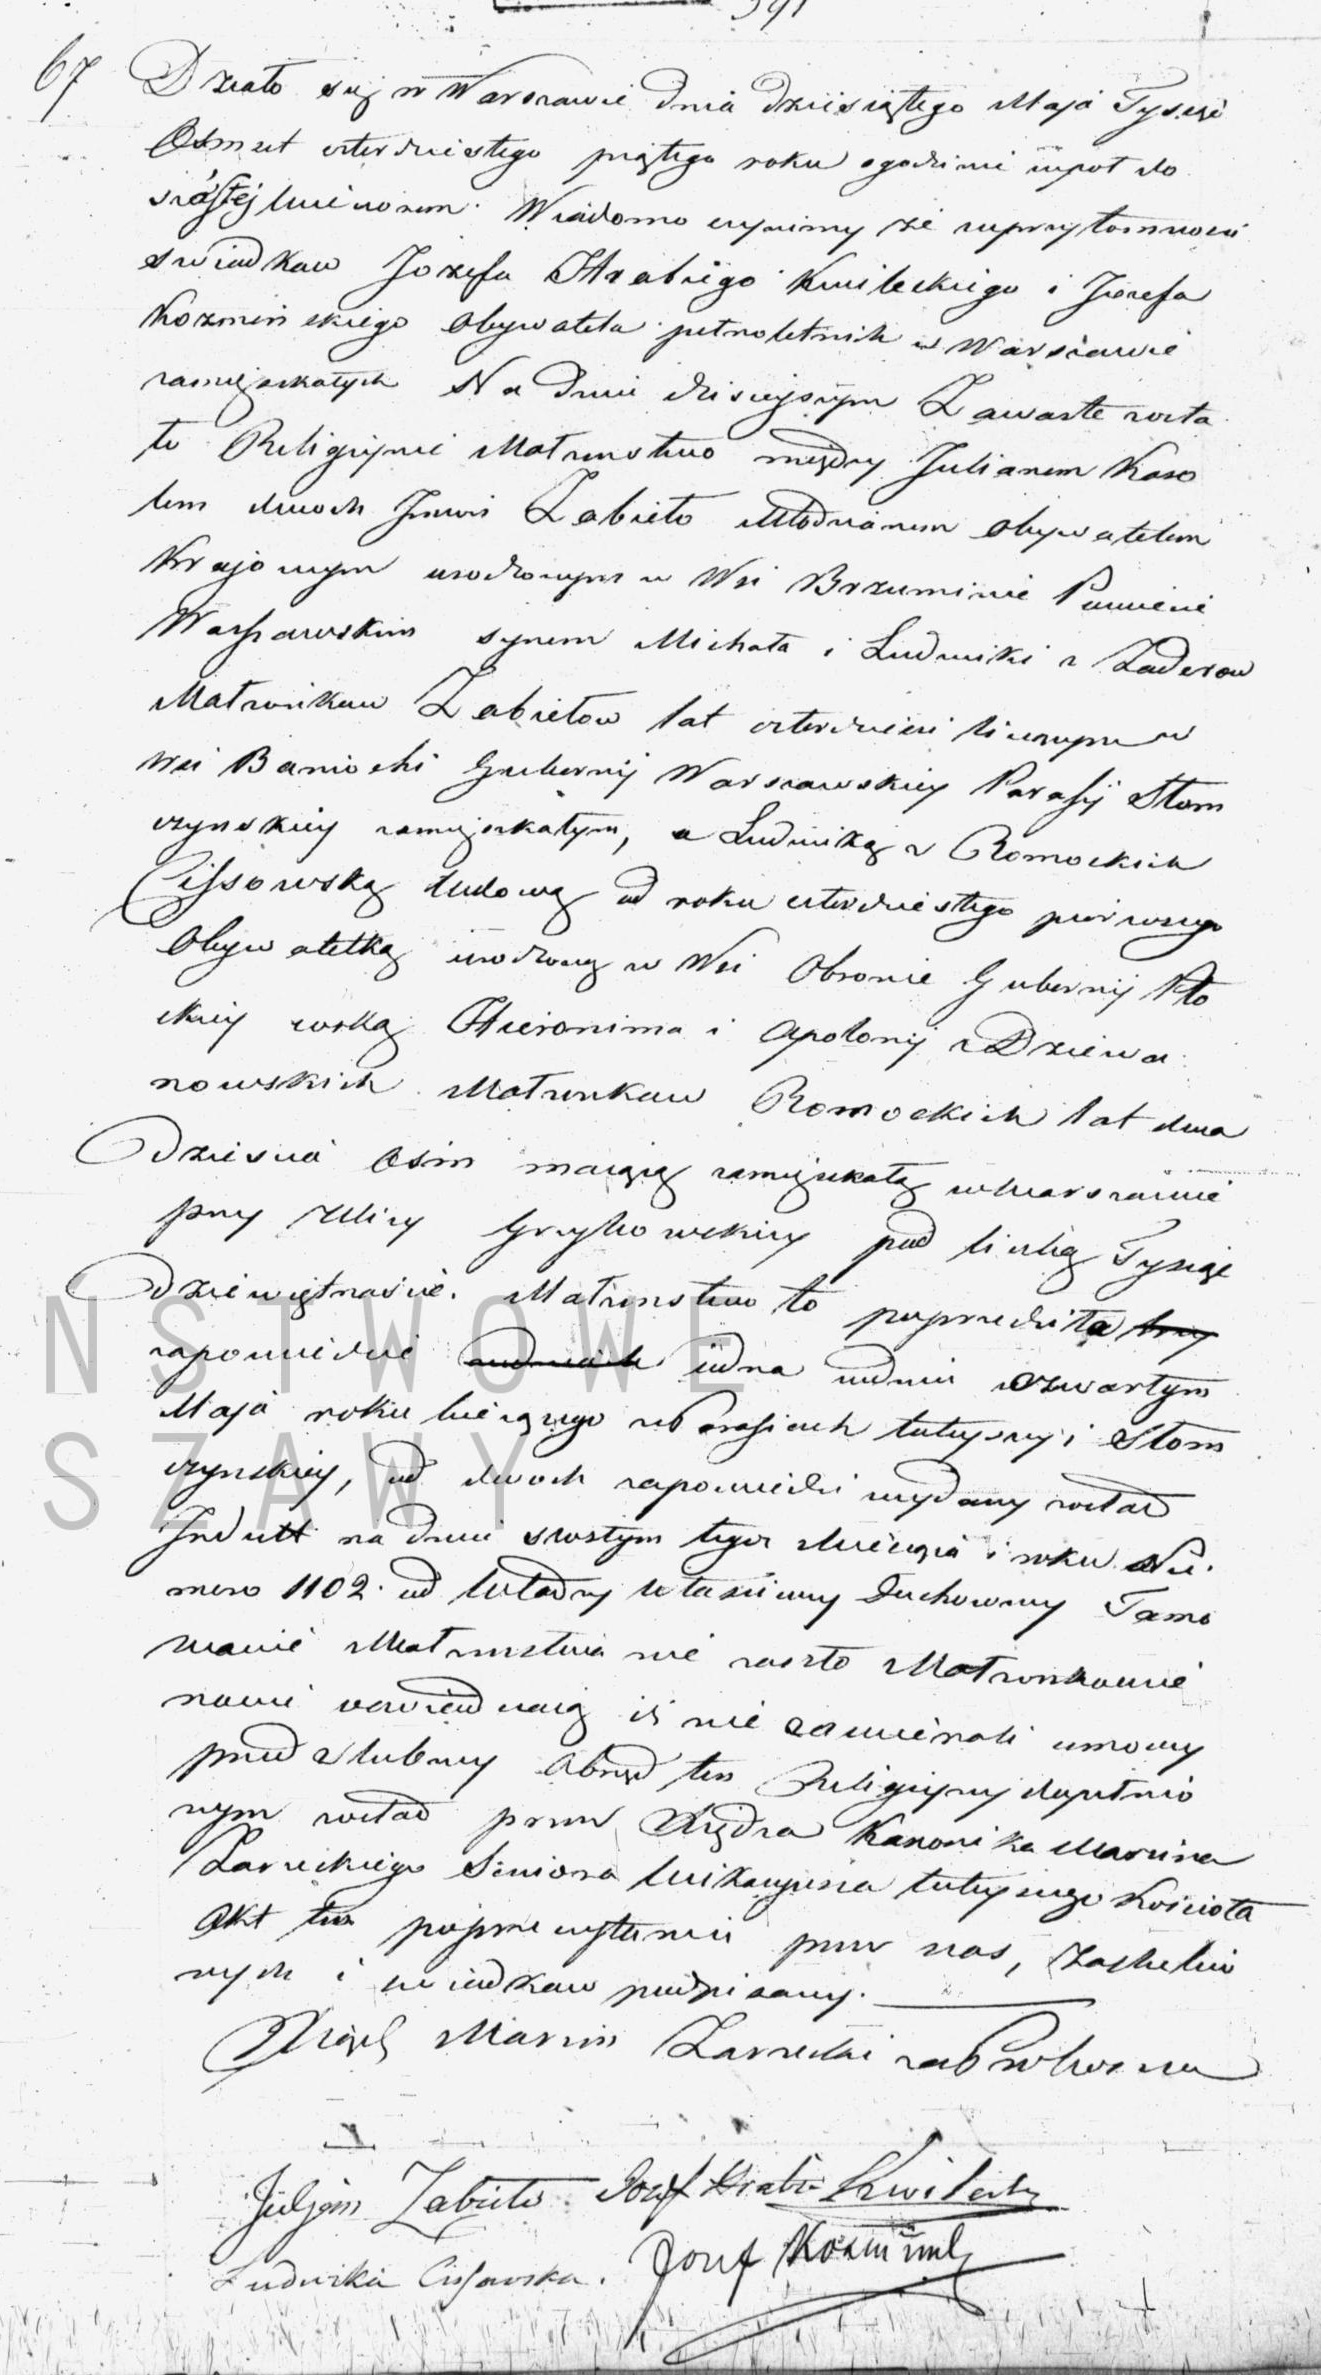 591
67
Działo się w Warszawie dnia dziesiątego Maja Tysiąc
Osmset czterdziestego piątego roku o godzinie wpół do
siódmej wieczorem. Wiadomo czynimy że w przytomności
swiadkow Jozefa Hrabiego Kwileckiego i Jozefa
Kozminskiego Obywatela pełnoletnich w Warszawie
zamięszkałych Na dniu disiejszym Zawarte zosta
ło Religijnie Małzenstwo między Julianem Karo
lem dwoch Imion Zabiełło Młodzianem Obywatelem
Krajowym urodzonym w Wsi Brzuminie Powiecie
Warszawskim synem Michała i Ludwiki z Zaderow
Małzonkow Zabiełow lat czterdzieści liczącym w
Wsi Baniochi Gubernij Warszawskiey Parafij Słom
czynskiey zamięszkałym, a Ludwiką z Romockich
Cissowską wdową od roku czterdziestego pierwszego
Obywatelką urodzoną w Wsi Obronie Gubernij Pło
ckiey corką Hieronima i Apolonij z Dziewa
nowskich Małzonkow Romockich lat dwa
dziescia osm maiącą zamięszkałą w Warszawie
przy Ulicy Grzybowskiey pod liczbą Tysiąc
dziewiętnaście. Małzenstwo to poprzedziła trzy
zapowiedzie w dniach iedna w dniu czwartym
Maja roku bieżącego w Parafiach tutejszej i Słom
czynskiey, od dwoch zapowiedzi wydany został
Indult na dniu szostym tegoż Miesiąca i roku Nu
mero 1102. od Władzy właściwey Duchowney Tamo
wanie Małzenstwa nie zaszło Małzonkowie
nowi oswiadczaią iż nie zawierali umowy
przedslubney Obrzęd ten Religijny dopełnio
nym został przez Xiędza Kanonika Marcina
Zarzeckiego Seniora Wikaryusza tutejszego Kościoła
Akt ten po przeczytaniu przez nas, Zaslubio
nych i swiadkow podpisany.
Xiądz Marcin Zarzecki za Proboszcza
Juljan Zabiełło Jozef Hrabia Kwilecki
Ludwika Cissowska. Jozef Kozminski
NSTWOWE
SZAWY